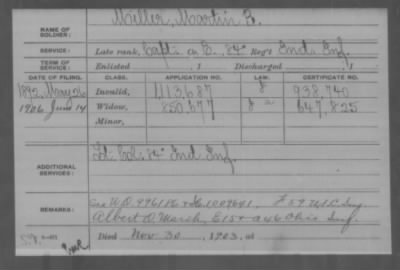 NAME OF SOLDIER: Miller, Martin B.
SERVICE: Late rank, Capt. Co. E., 84" Reg't Ind. Inf.
TERM OF SERVICE: Enlisted , 1 Discharged , 1
DATE OF FILING. CLASS. APPLICATION NO. LAW. CERTIFICATE NO.
1892, May 26 Invalid, 1113,687 938,740
1906, June 14 Widow, 850,677 647,825
Minor,
ADDITIONAL SERVICES: Lt. Col. 84" Ind Inf.
REMARKS:
Albert D. Marsh, E 15 + a 46 Ohio Inf.
Died Nov. 30 , 1903, at